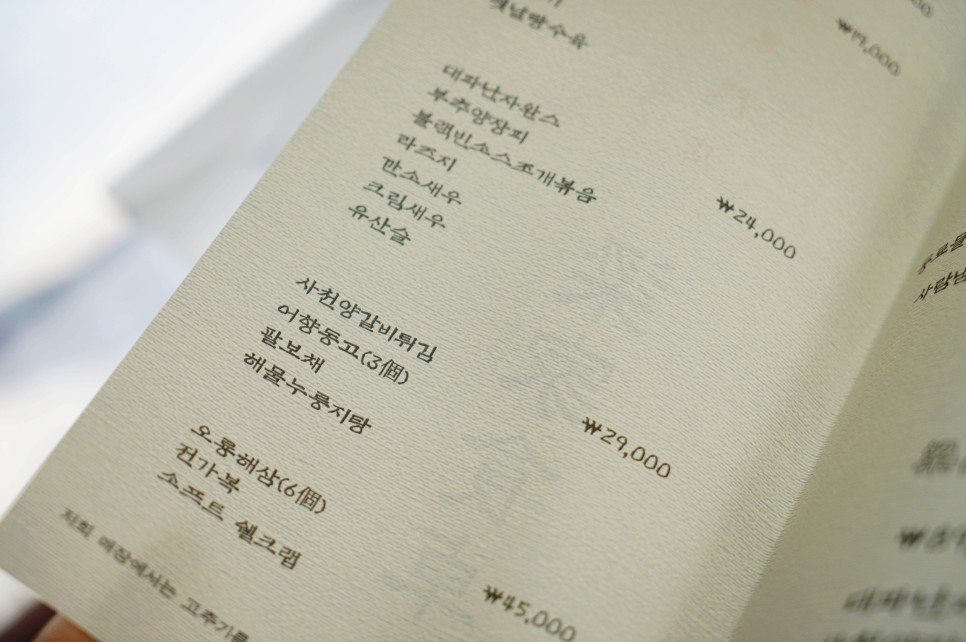 옛날탕수육
₩19,000
대파난자완스
부추양장피
블랙빈소스조개볶음
라즈지
깐쇼새우
크림새우
유산슬
₩24,000
사천양갈비튀김
어향동고(3個)
팔보채
해물누룽지탕
₩29,000
오룡해삼(6個)
전가복
소프트 쉘크랩
₩45,000
저희 매장에서는 고추기름